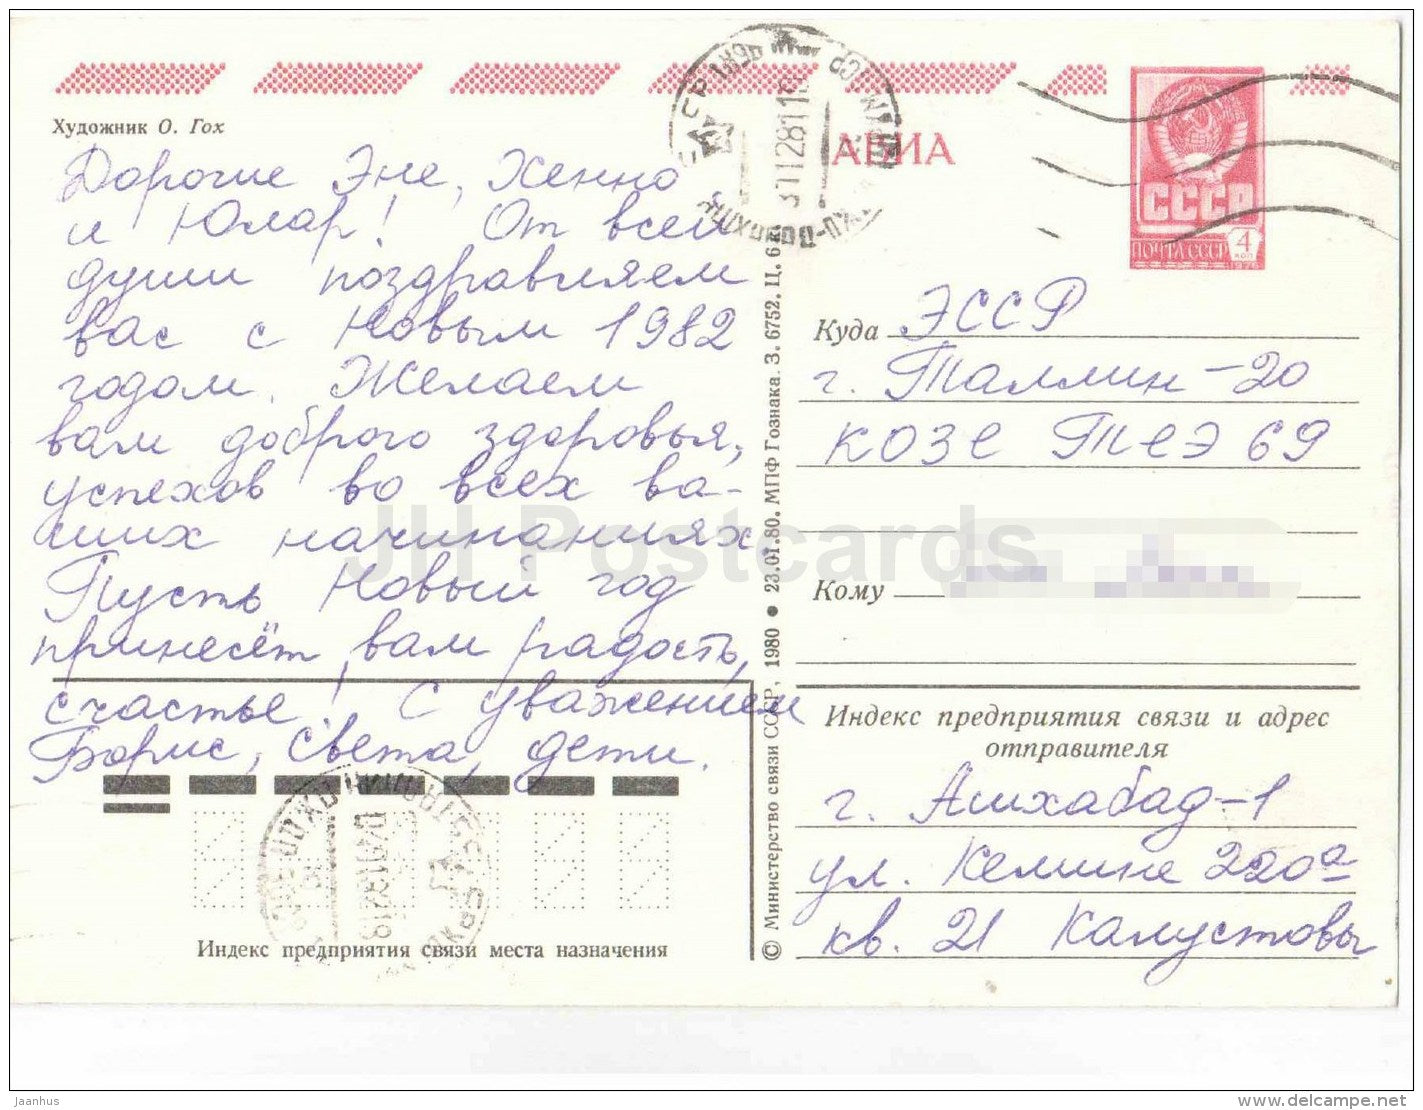 Художник О. Гох
АВИА
СССР
ПОЧТА СССР
4
коп
1976
Дорогие Эне, Хенно
и Юлар! От всей
души поздравляем
вас с Новым 1982
годом. Желаем
вам доброго здоровья,
успехов во всех ва-
ших начинаниях.
Пусть Новый год
принесёт вам радость,
счастье! С уважением
Борис, Света, дети.
Индекс предприятия связи места назначения
© Министерство связи СССР, 1980 • 23.01.80. МПФ Гознака. З. 6752. Ц. 6 к.
Куда ЭССР
г. Таллин-20
КОЗЕ ТЕЭ 69
Кому
Индекс предприятия связи и адрес
отправителя
г. Ашхабад-1
ул. Кемине 220а
кв. 21 Калустовы
JH Postcards
Jaanhus
www.delcampe.net